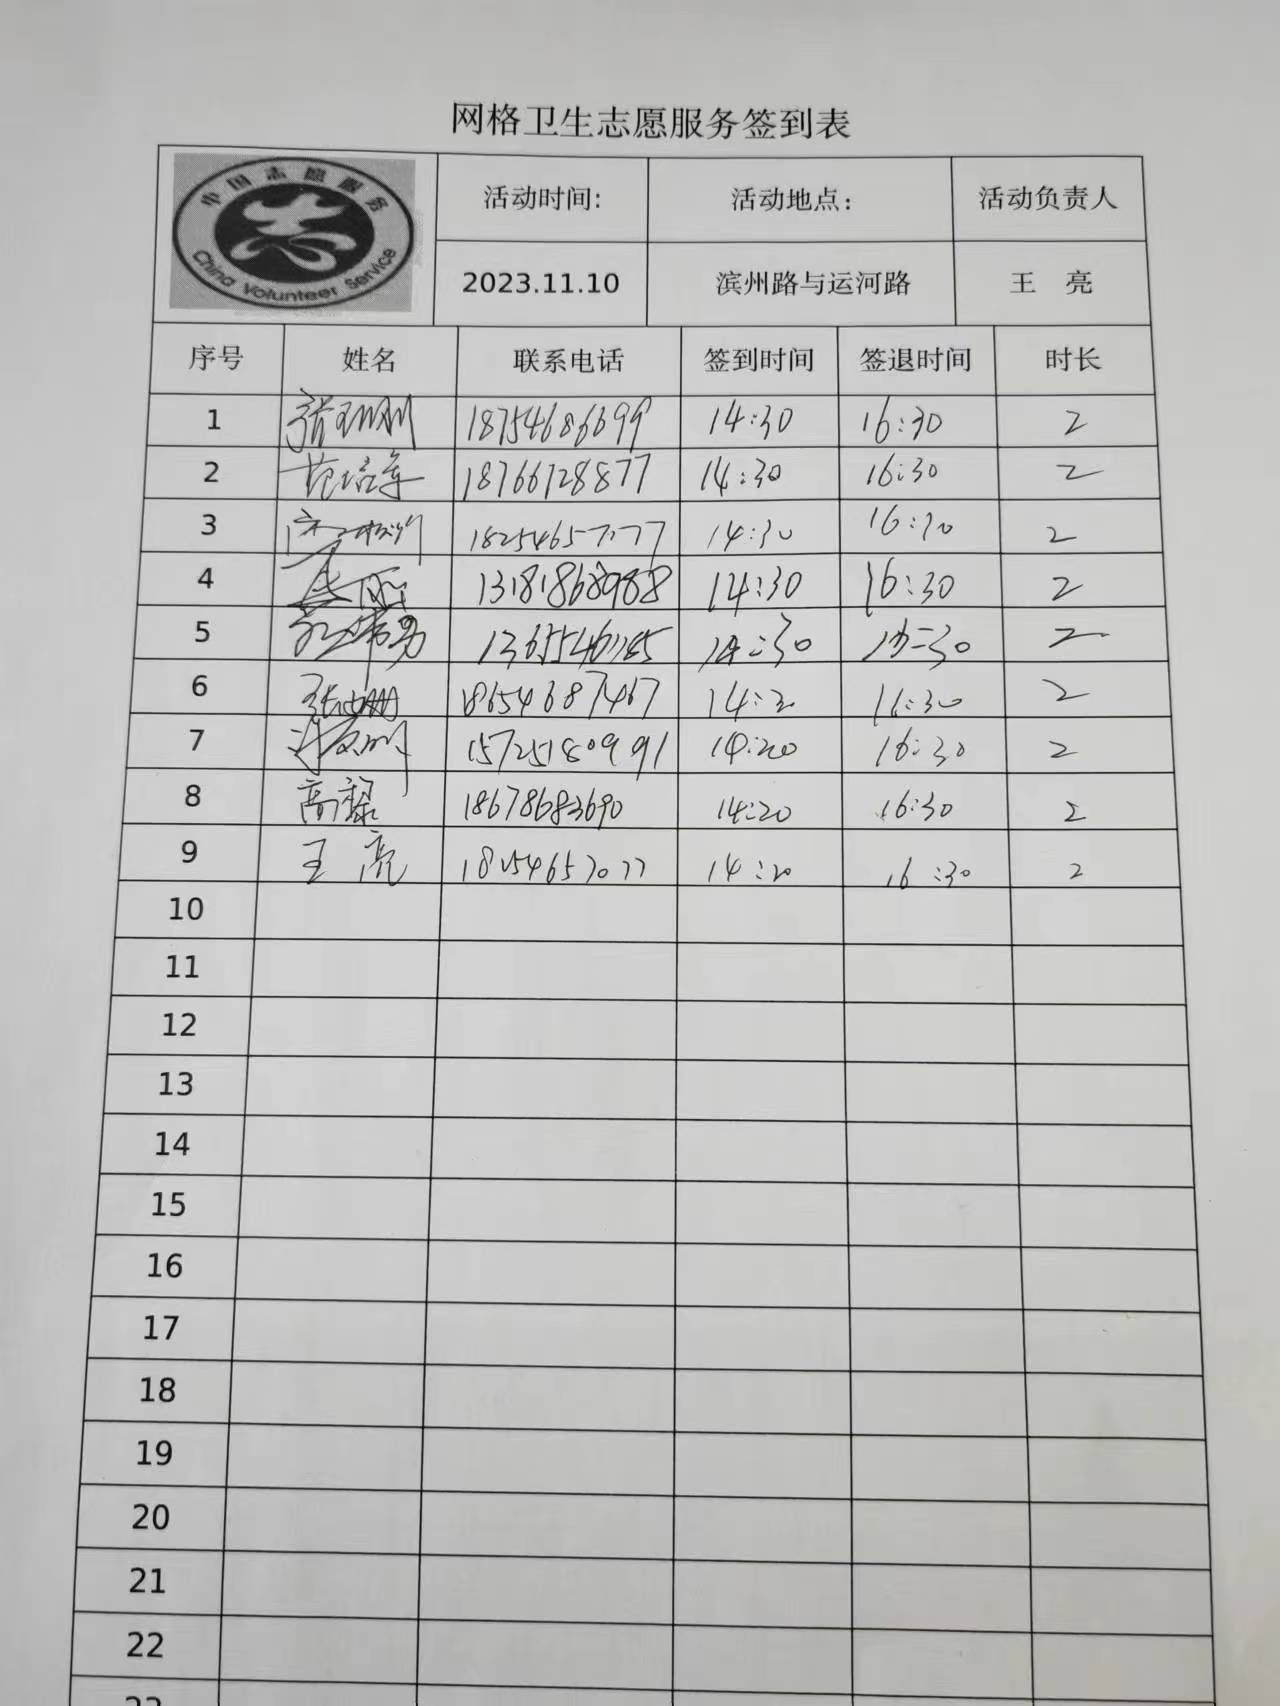 网格卫生志愿服务签到表
中国志愿服务
China Volunteer Service
活动时间: 活动地点: 活动负责人
2023.11.10 滨州路与运河路 王 亮
序号 姓名 联系电话 签到时间 签退时间 时长
1 18754686699 14:30 16:30 2
2 18766128877 14:30 16:30 2
3 14:30 16:30 2
4 13181868988 14:30 16:30 2
5 14:30 16:30 2
6 18654687467 16:30 2
7 15725180991 14:20 16:30 2
8 高黎 18678683690 14:20 16:30 2
9 王 亮 14:20 16:30 2
10
11
12
13
14
15
16
17
18
19
20
21
22
23